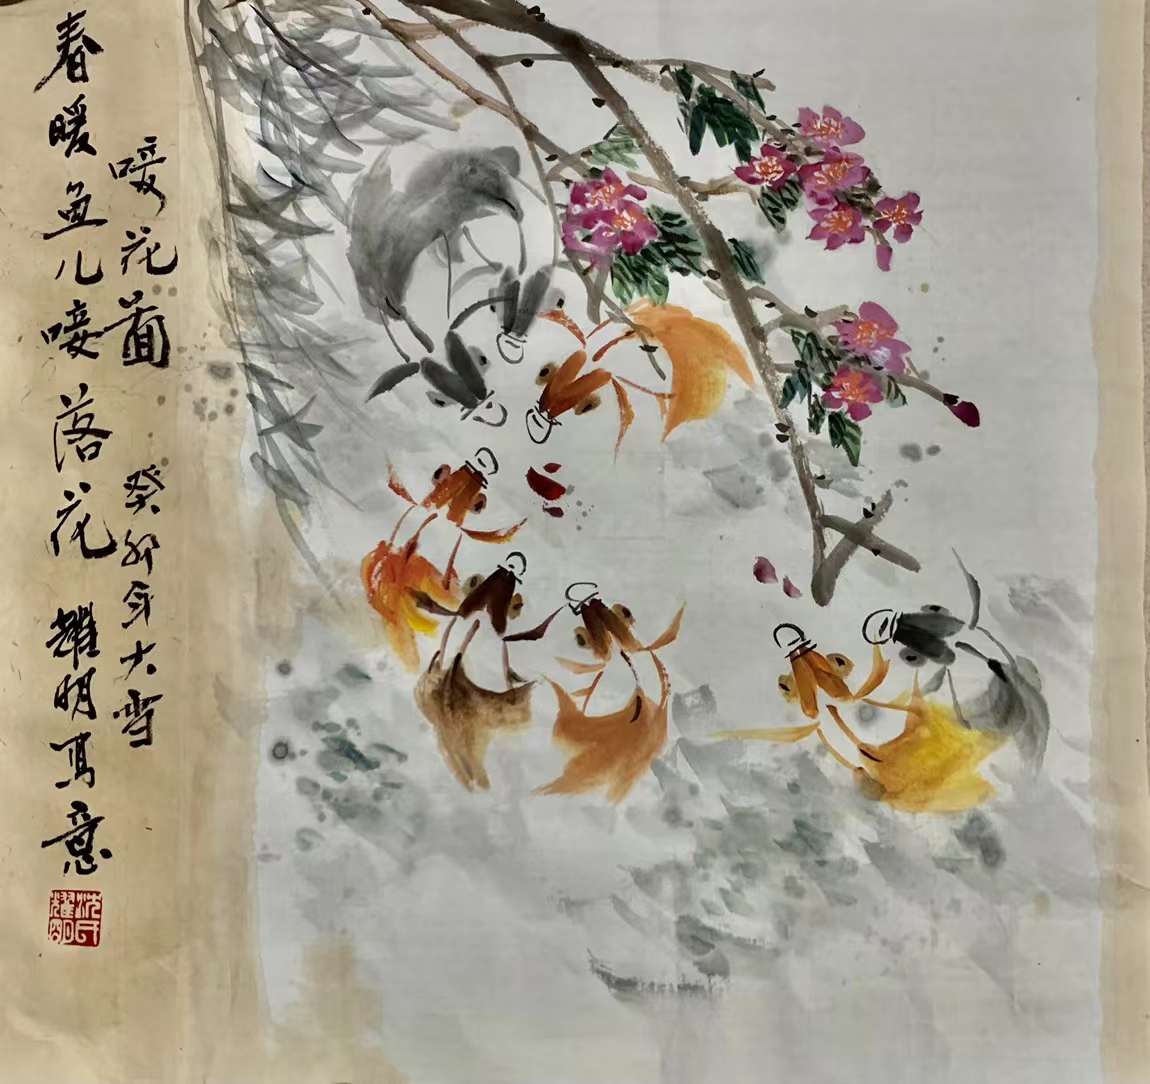 唼花圖 癸卯年大雪
春暖鱼儿唼落花 耀明写意
沈氏
耀明